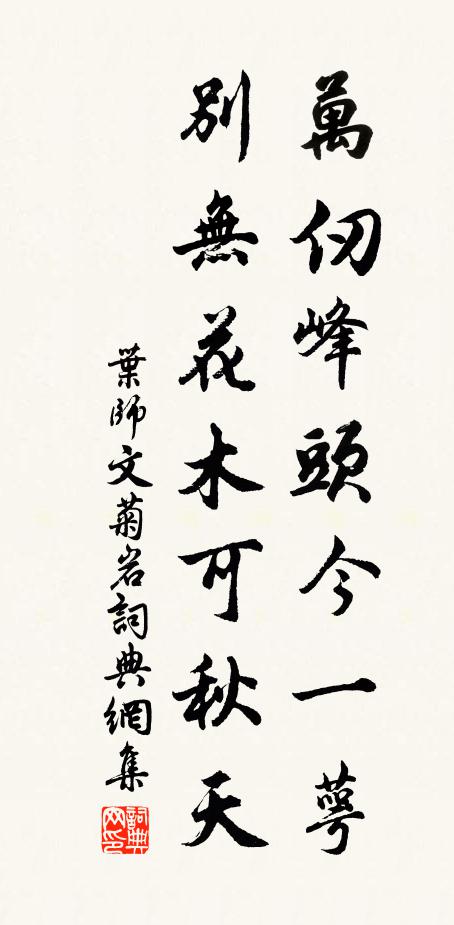 萬仞峰頭今一萼
別無花木可秋天
葉師文菊岩詞典網集
詞典网印